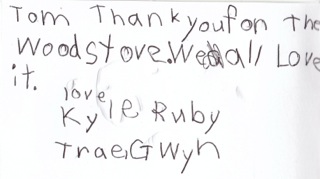 Tom Thankyoufon The
Woodstove.We all Love
it.
love
Kyle Ruby
Trae,Gwyn